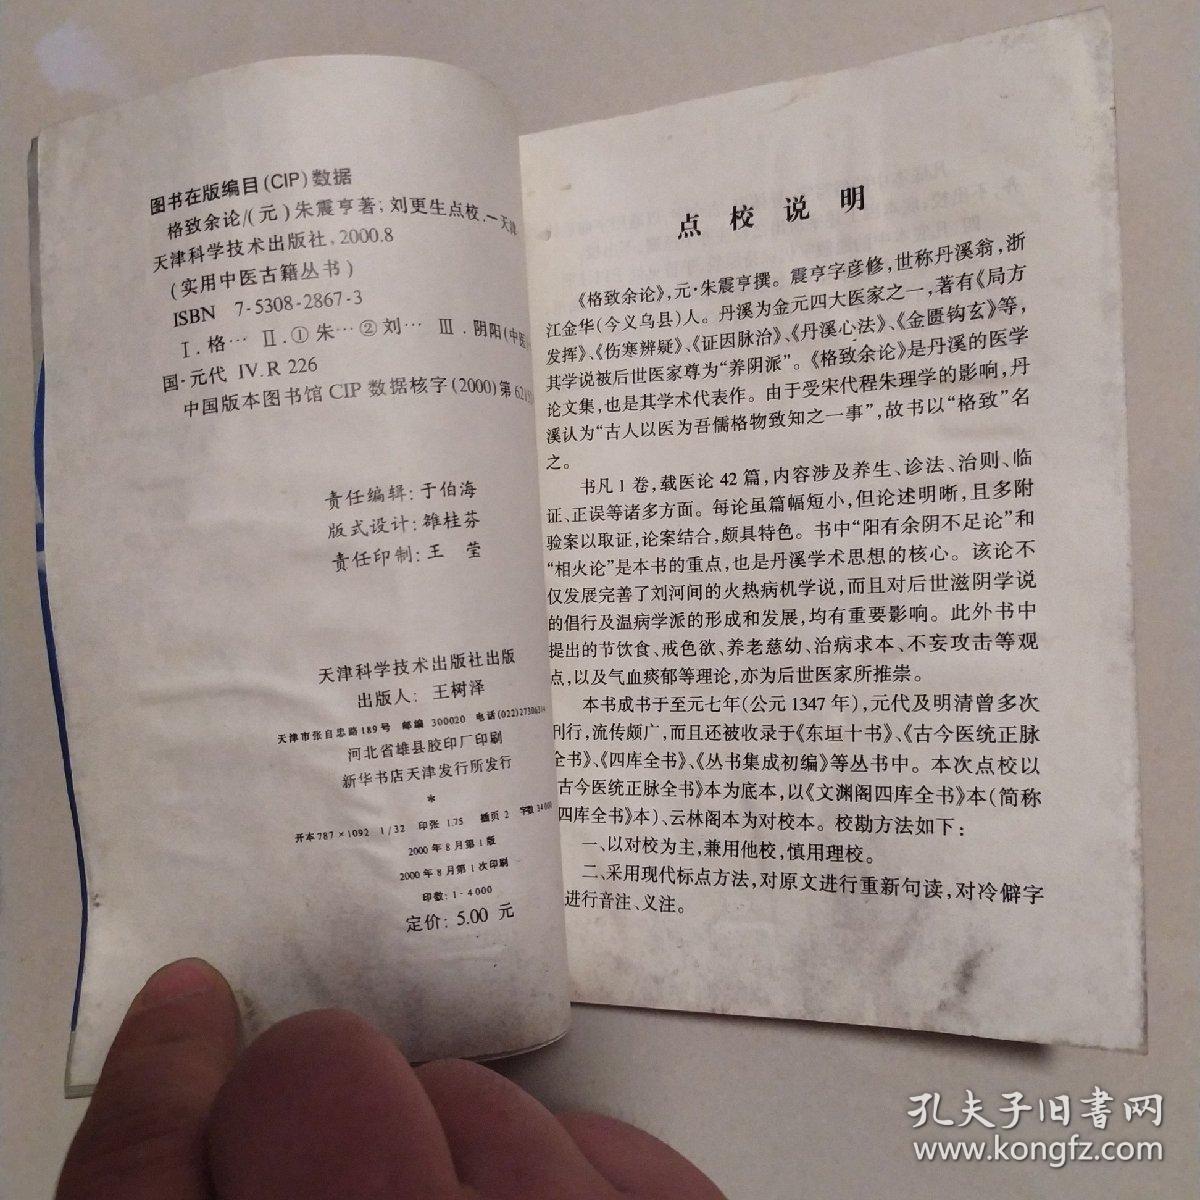 图书在版编目(CIP)数据
格致余论/(元)朱震亨著;刘更生点校.一天津
天津科学技术出版社,2000.8
(实用中医古籍丛书)
ISBN 7-5308-2867-3
Ⅰ.格… Ⅱ.①朱…②刘… Ⅲ.阴阳(中医)
国-元代 Ⅳ.R 226
中国版本图书馆CIP数据核字(2000)第
责任编辑:于伯海
版式设计:雒桂芬
责任印制:王 莹
天津科学技术出版社出版
出版人:王树泽
天津市张自忠路189号 邮编 300020 电话(022)27306314
河北省雄县胶印厂印刷
新华书店天津发行所发行
*
开本787×1092 1/32 印张 1.75 插页 2 字数 34 000
2000年8月第1版
2000年8月第1次印刷
印数:1-4000
定价:5.00 元
点校说明
《格致余论》,元·朱震亨撰。震亨字彦修,世称丹溪翁,浙
江金华(今义乌县)人。丹溪为金元四大医家之一,著有《局方
发挥》、《伤寒辨疑》、《证因脉治》、《丹溪心法》、《金匮钩玄》等,
其学说被后世医家尊为“养阴派”。《格致余论》是丹溪的医学
论文集,也是其学术代表作。由于受宋代程朱理学的影响,丹
溪认为“古人以医为吾儒格物致知之一事”,故书以“格致”名
之。
书凡1卷,载医论42篇,内容涉及养生、诊法、治则、临
证、正误等诸多方面。每论虽篇幅短小,但论述明晰,且多附
验案以取证,论案结合,颇具特色。书中“阳有余阴不足论”和
“相火论”是本书的重点,也是丹溪学术思想的核心。该论不
仅发展完善了刘河间的火热病机学说,而且对后世滋阴学说
的倡行及温病学派的形成和发展,均有重要影响。此外书中
提出的节饮食、戒色欲、养老慈幼、治病求本、不妄攻击等观
点,以及气血痰郁等理论,亦为后世医家所推崇。
本书成书于至元七年(公元1347年),元代及明清曾多次
刊行,流传颇广,而且还被收录于《东垣十书》、《古今医统正脉
全书》、《四库全书》、《丛书集成初编》等丛书中。本次点校以
古今医统正脉全书》本为底本,以《文渊阁四库全书》本(简称
四库全书》本)、云林阁本为对校本。校勘方法如下:
一、以对校为主,兼用他校,慎用理校。
二、采用现代标点方法,对原文进行重新句读,对冷僻字
进行音注、义注。
孔夫子旧书网
www.kongfz.com